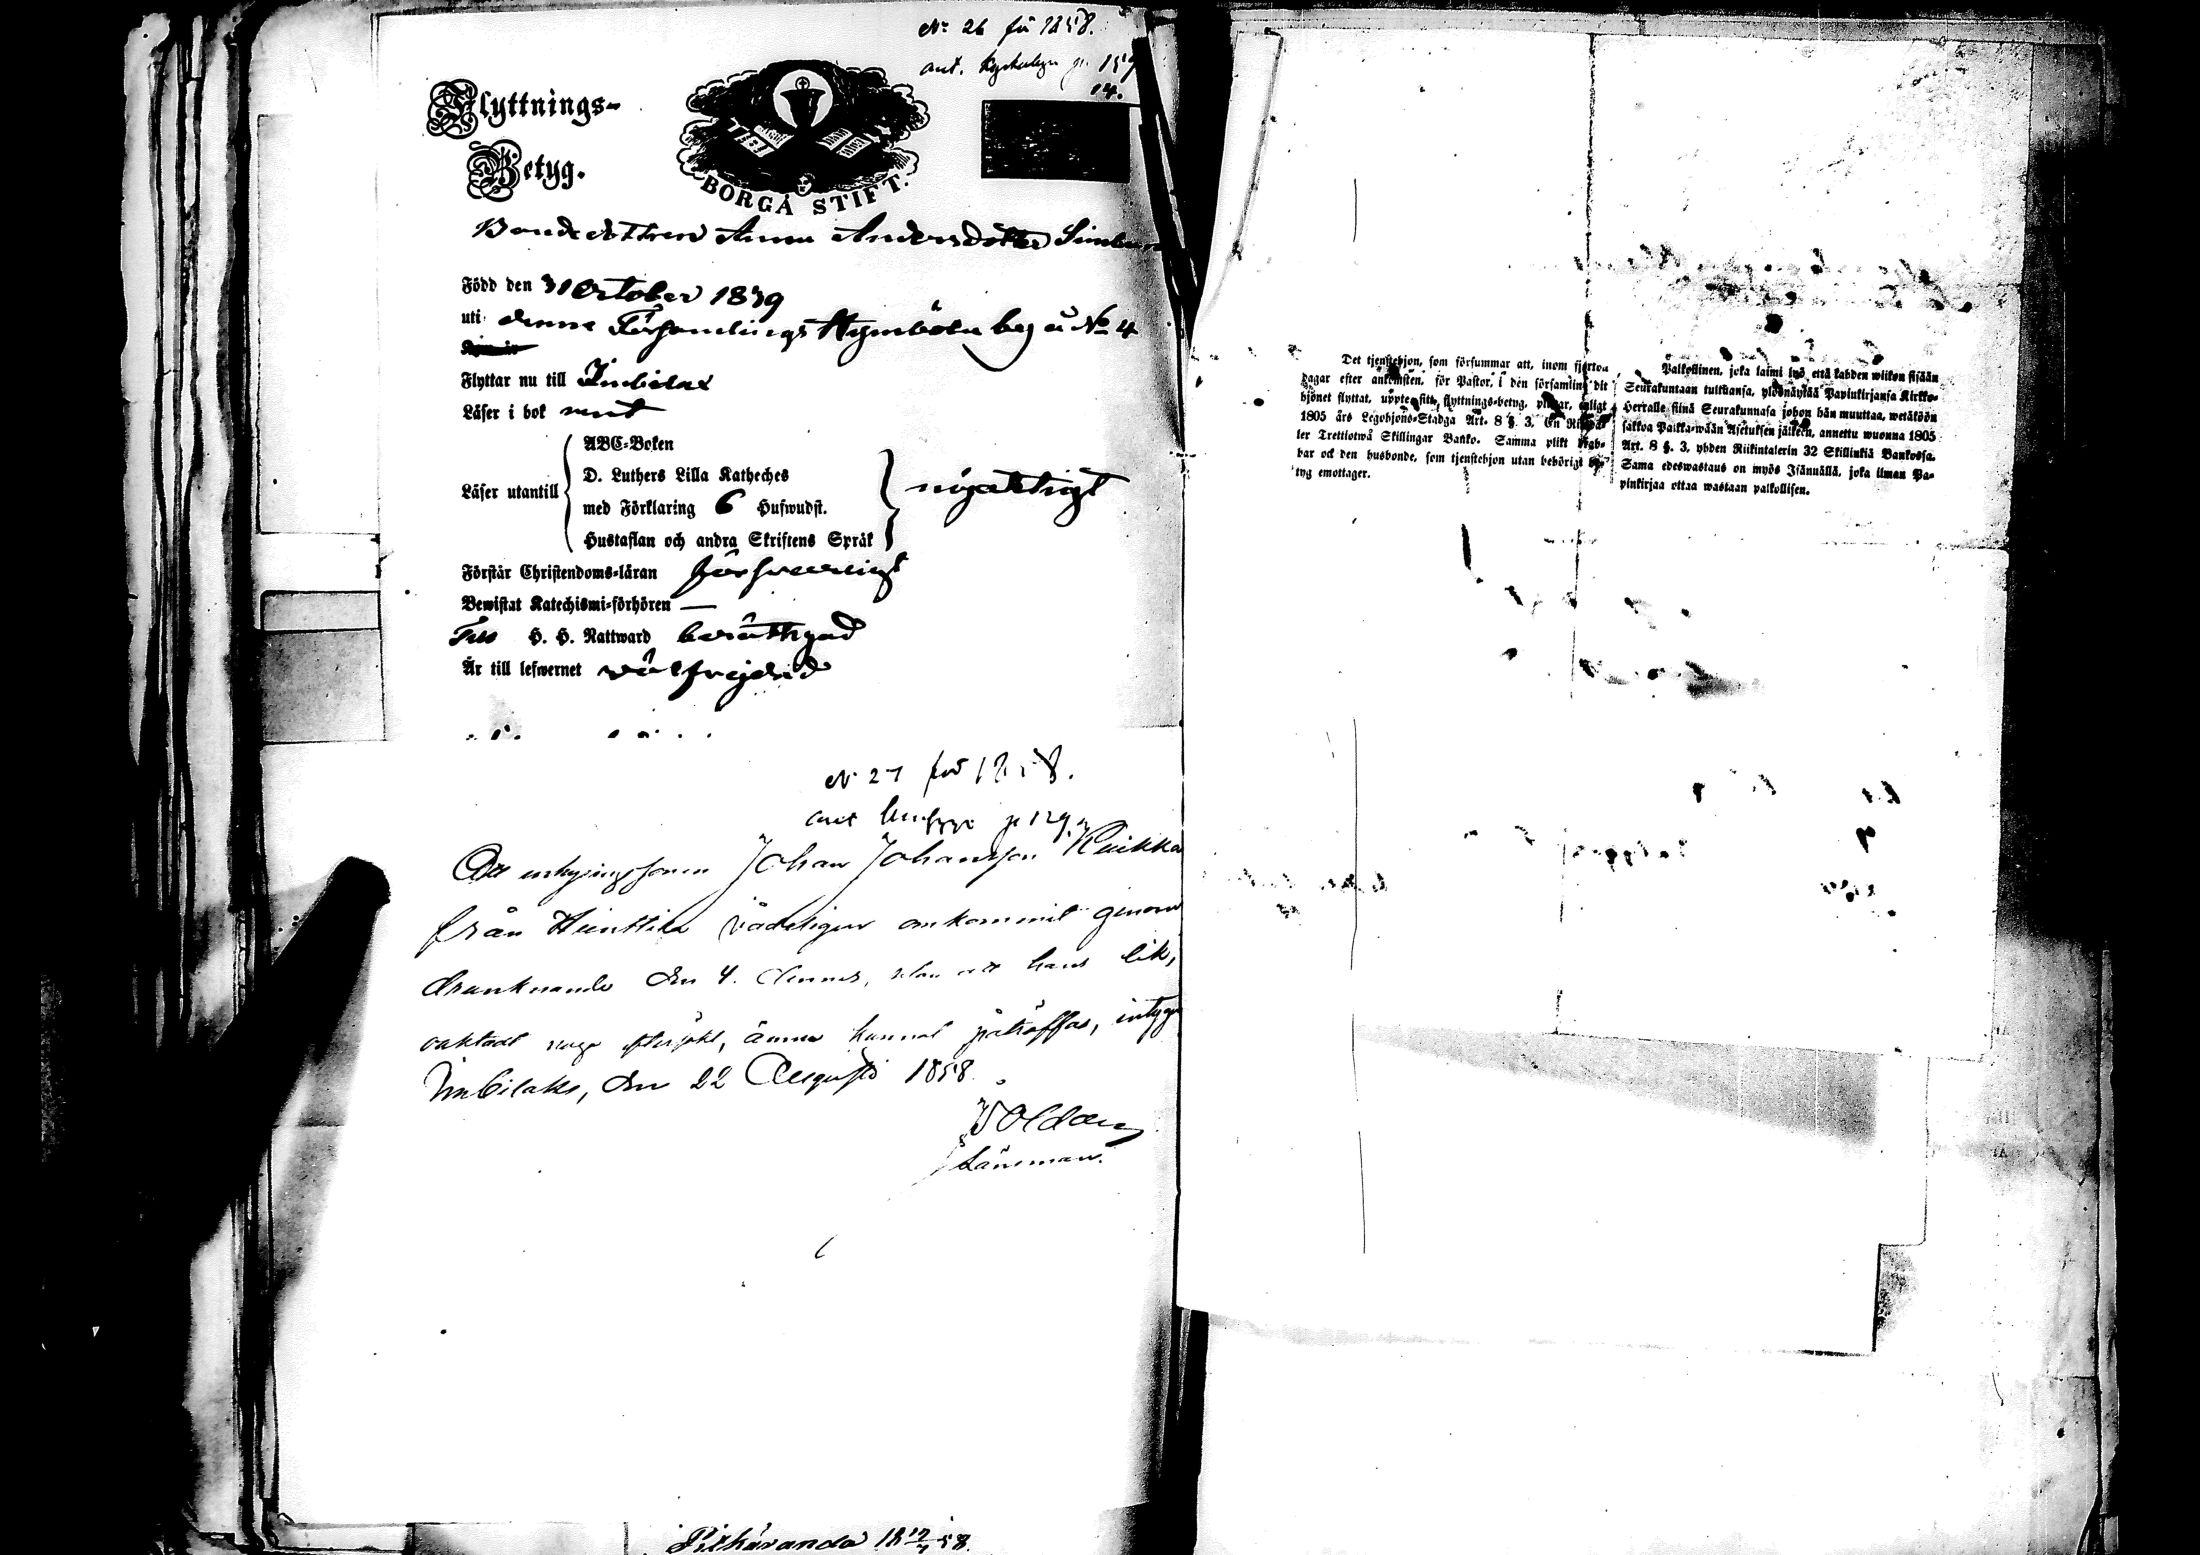 No 26 för 1858.
ant. p. 159
14.
Flyttnings-
Betyg.
BORGÅ STIFT.
Bondedottren Anna Andersdotter
Född den 31 October 1839
uti denna Församlings by å No 4
Flyttar nu till Imbilax
Läser i bok rent
ABC-Boken
D. Luthers Lilla Katheches
Läser utantill
med Förklaring 6 Hufwudst.
nöjaktigt
Hustaflan och andra Skriftens Språk
Förstår Christendoms-läran försvarligt
Bewistat Katechismi-förhören —
Till H. H. Nattward berättigad
Är till lefwernet välfrejdad
No 27 för 1858.
p 129.
Att Johan Johansson Kuikka
från omkommit genom
drunknande den 4. dennes, utan att hans lik,
oaktadt noga eftersökt, ännu kunnat påträffas, intygar
Imbilaks, den 22 Augusti 1858.
Länsman.
Pitkäranda 18 58.
Det tjenstehjon, som försummar att, inom fjorton
dagar efter ankomsten, för Pastor, i den församling dit
hjonet flyttat, uppte sitt flyttnings-betyg, pliktar, enligt
1805 års Legohjons-Stadga Art. 8 §. 3. En Riksda-
ler Trettiotwå Skillingar Banko. Samma plikt
har ock den husbonde, som tjenstehjon utan behörigt be-
tyg emottager.
Palkollinen, joka laimi lyö, että kahden wiikon sisään
Seurakuntaan tultuansa, ylösnäyttää Papinkirjansa Kirkko-
Herralle siinä Seurakunnasa johon hän muuttaa, wetäköön
sakkoa Paikka-wään Asetuksen jälkeen, annettu wuonna 1805
Art. 8 §. 3, yhden Riikintalerin 32 Skillinkiä Bankossa.
Sama edeswastaus on myös Isännällä, joka ilman Pa-
pinkirjaa ottaa wastaan palkollisen.